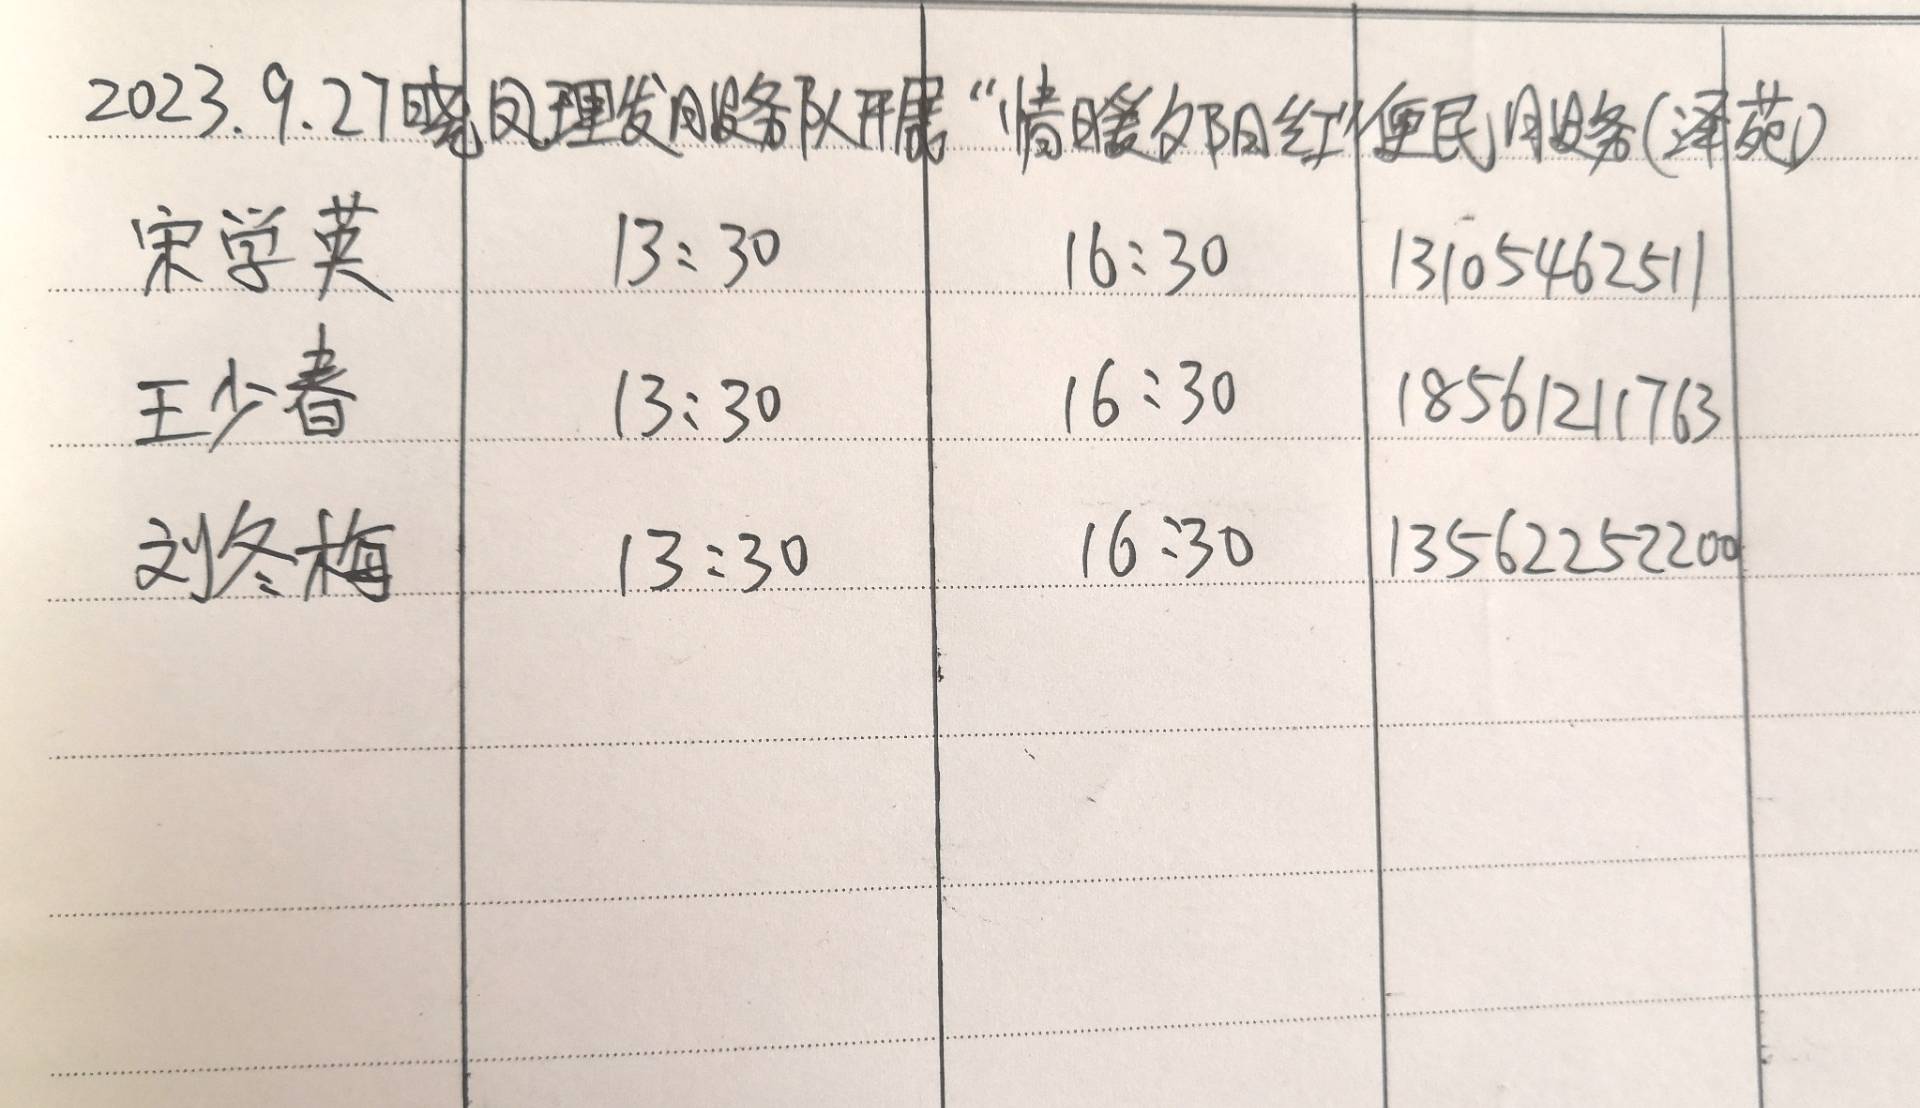 2023.9.27晓风理发服务队开展“情暖夕阳红”便民服务(泽苑)
宋学英 13:30 16:30 13105462511
王少春 13:30 16:30 18561211763
刘冬梅 13:30 16:30 13562252200